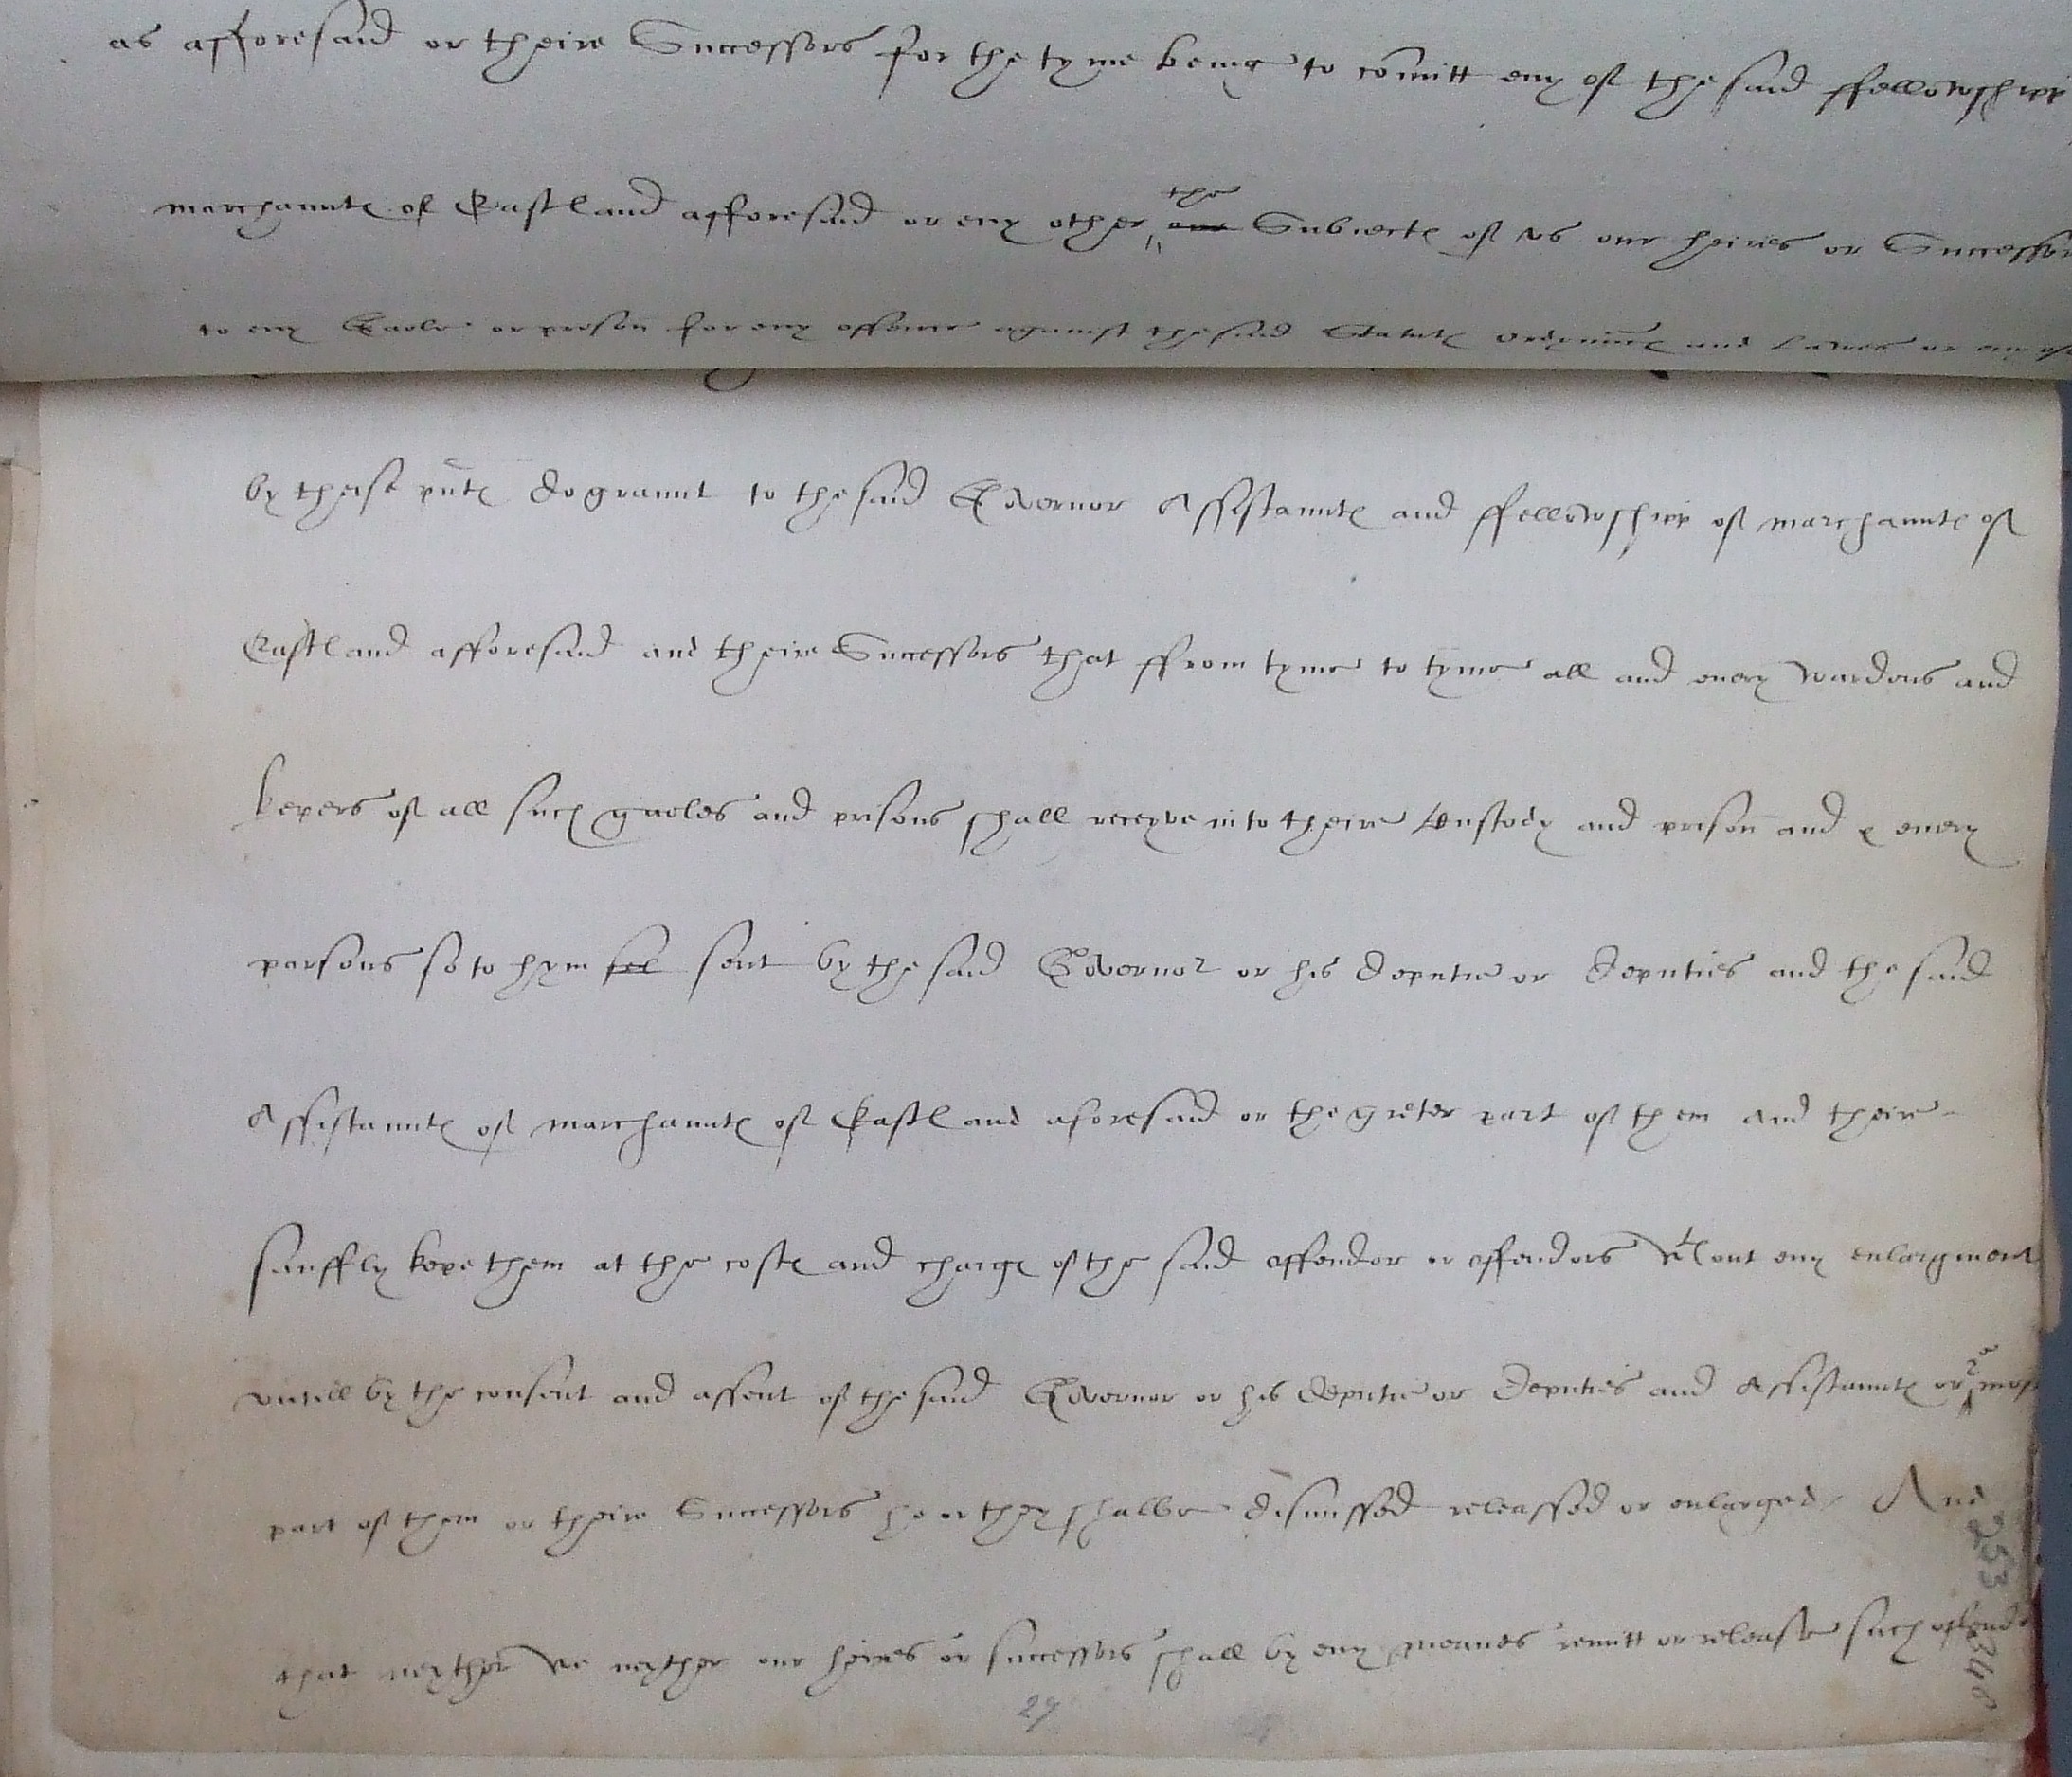 as afforesaid or theire Successors for the tyme being to comitt eny of the said ffellowshipp
marchauntes of Eastland afforesaid or eny other the our Subiectes of us our heires or Successors
to eny Gaole or prison for eny offence against the said Statutes ordynnces and Lawes or eny of
by theise pntes do graunt to the said Governor Assistauntes and ffellowshipp of marchauntes of
Eastland afforesaid and theire Successors that ffrom tyme to tyme all and euery wardens and
kepers of all such gaoles and prisons shall receyve into theire Custody and prison and euery
parsons so to hym sent by the said Governor or his deputie or deputies and the said
Assistauntes of marchauntes of Eastland aforesaid or the greter part of them and theire
sauffly kepe them at the costes and charges of the said offendor or offendors wthout eny enlargment
vntill by the consent and assent of the said Governor or his deputie or Deputies and Assistauntes or most
part of them or theire Successors he or they shalbe dismissed releassed or enlarged / And
that neyther we neyther our heires or successors shall by eny meanes remitt or release such offend
29
253
348